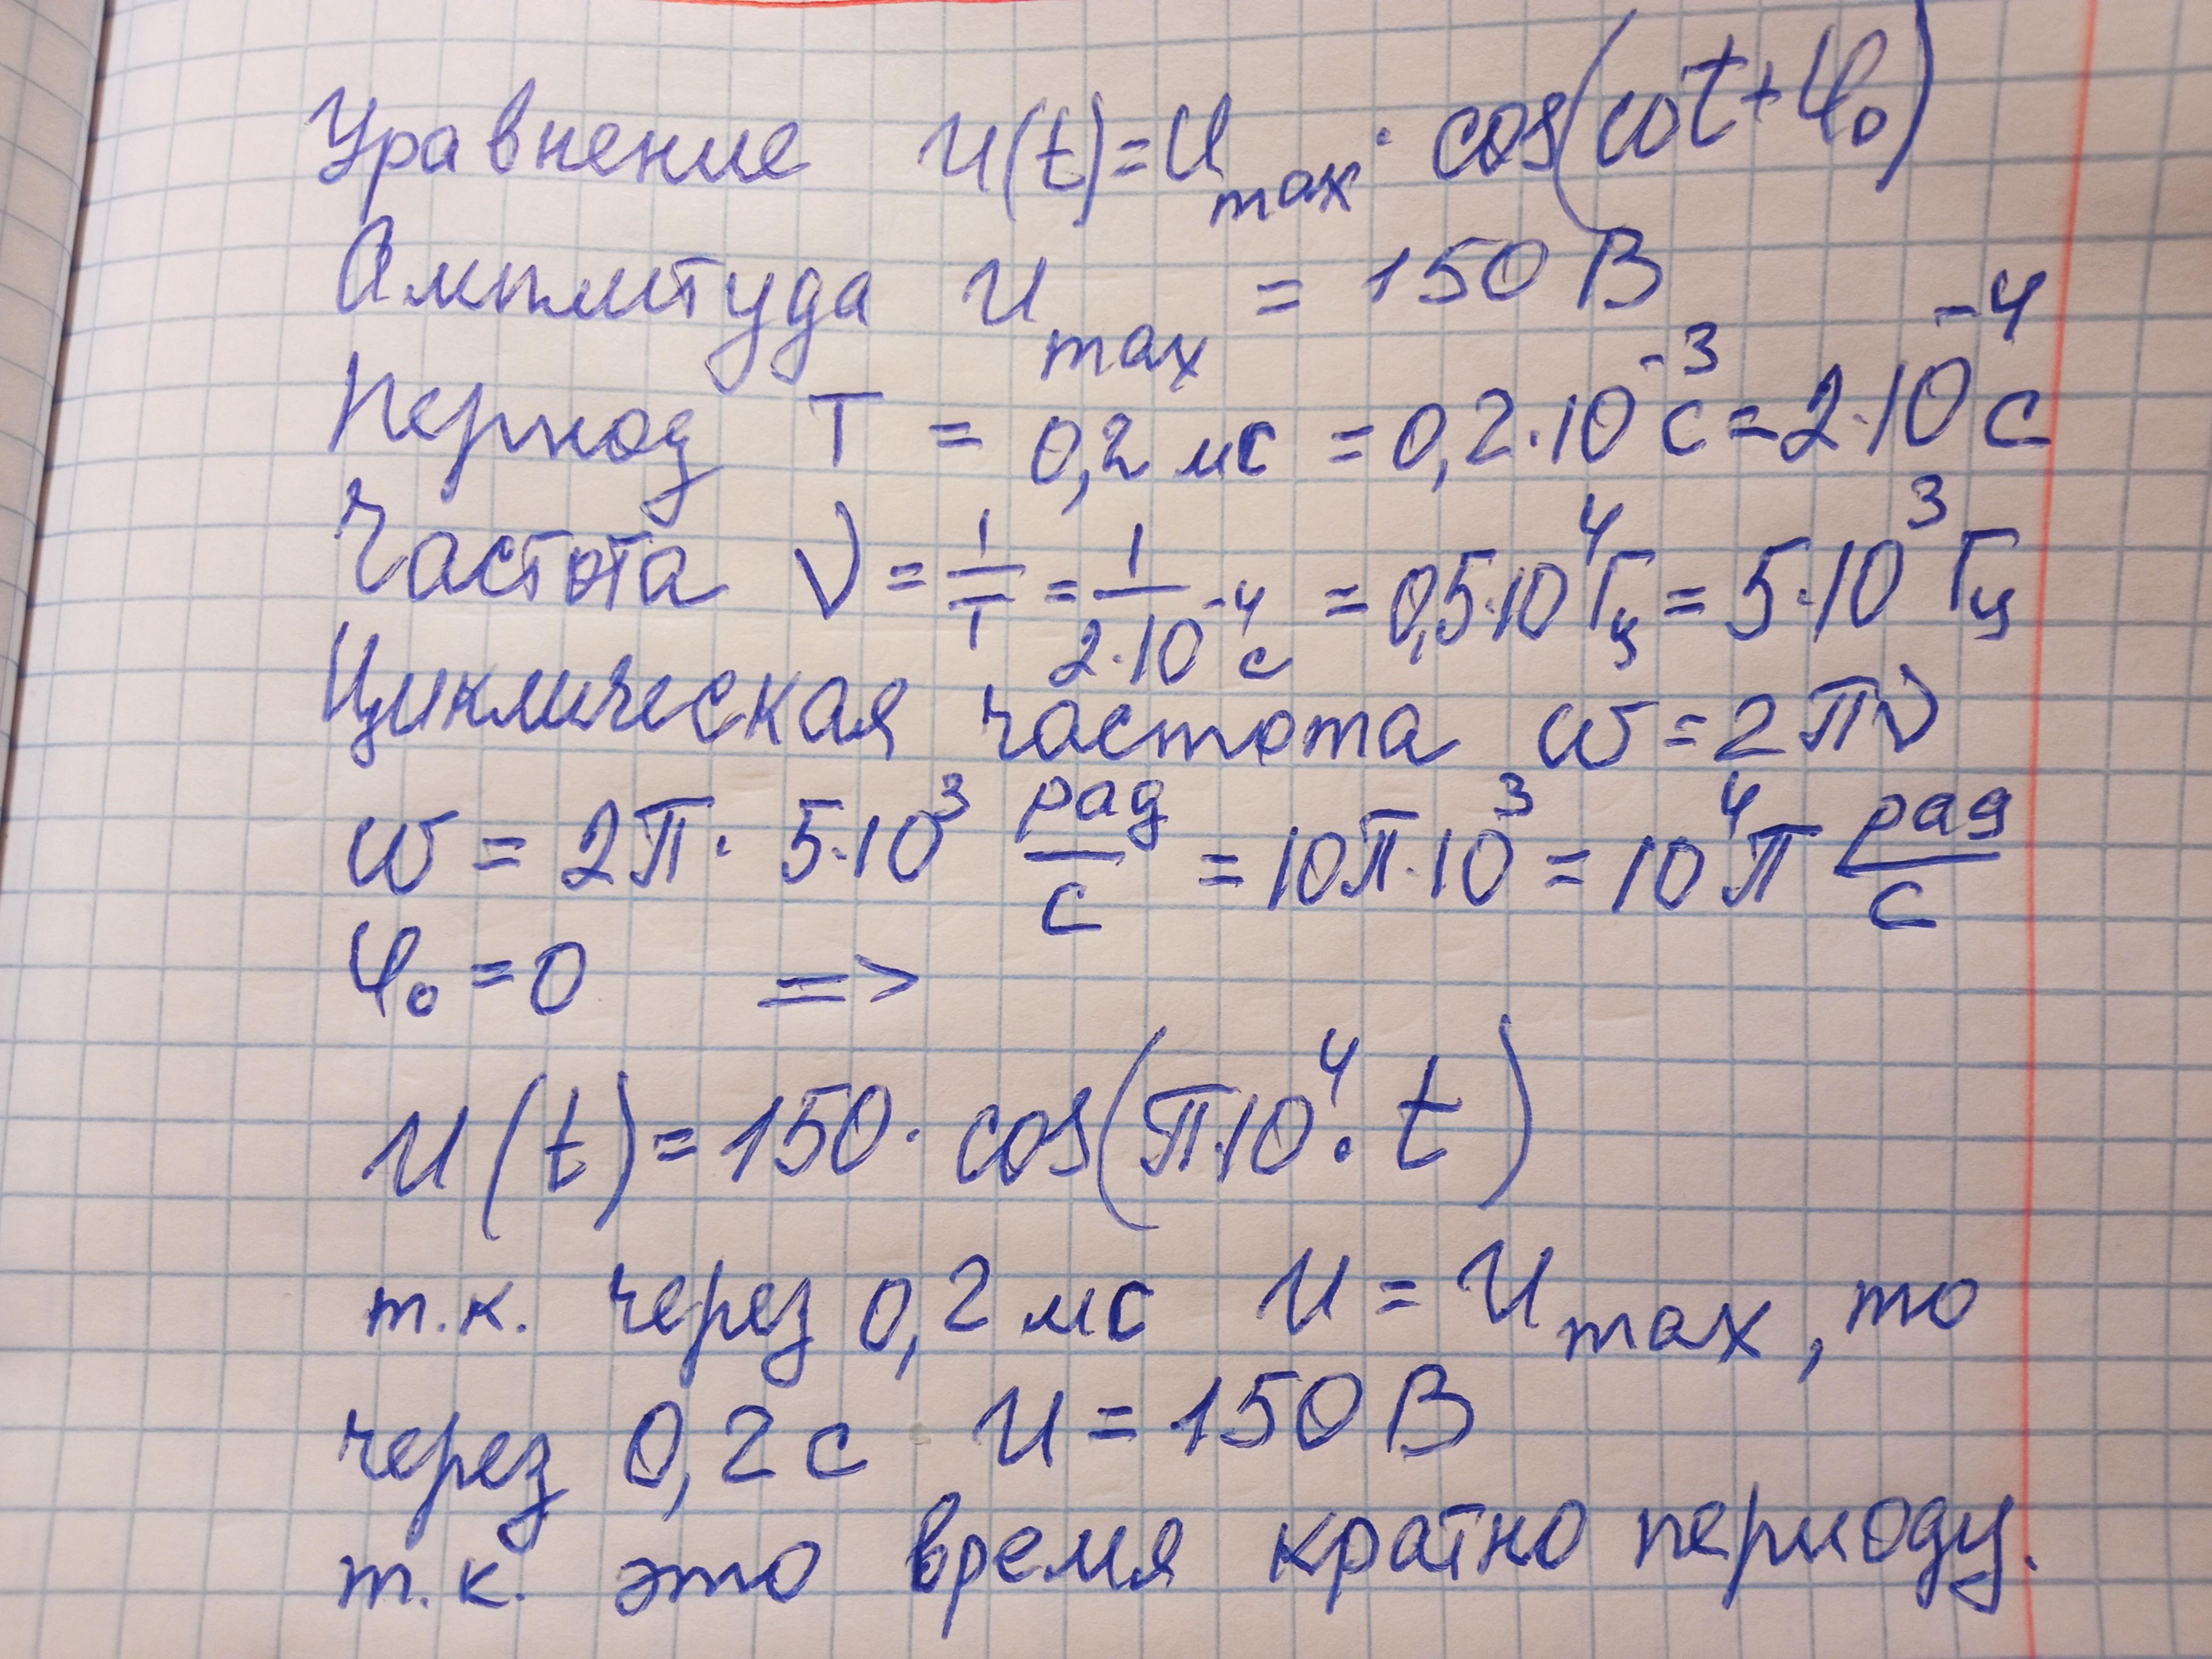 Уравнение u(t)=U_max · cos(ωt+φ₀)
Амплитуда U_max = 150 В
Период T = 0,2 мс = 0,2·10⁻³ с = 2·10⁻⁴ с
Частота ν = 1/T = 1/(2·10⁻⁴ с) = 0,5·10⁴ Гц = 5·10³ Гц
Циклическая частота ω = 2πν
ω = 2π · 5·10³ рад/с = 10π·10³ = 10⁴π рад/с
φ₀ = 0 =>
u(t) = 150 · cos(π·10⁴·t)
т.к. через 0,2 мс u = U_max, то
через 0,2 с u = 150 В
т.к. это время кратно периоду.